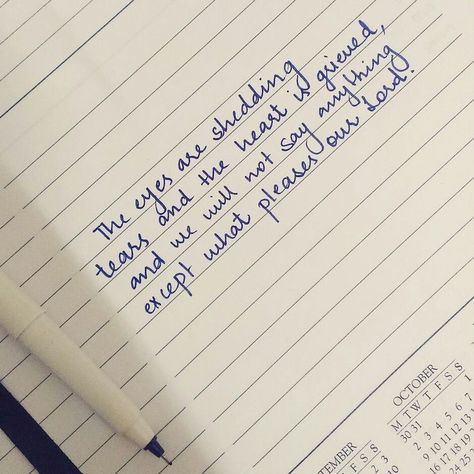 The eyes are shedding
tears and the heart is grieved,
and we will not say anything
except what pleases our Lord.
OCTOBER
M T W T F S S
30 31 1
2 3 4 5 6 7
9 10 11 12 13
TEMBER